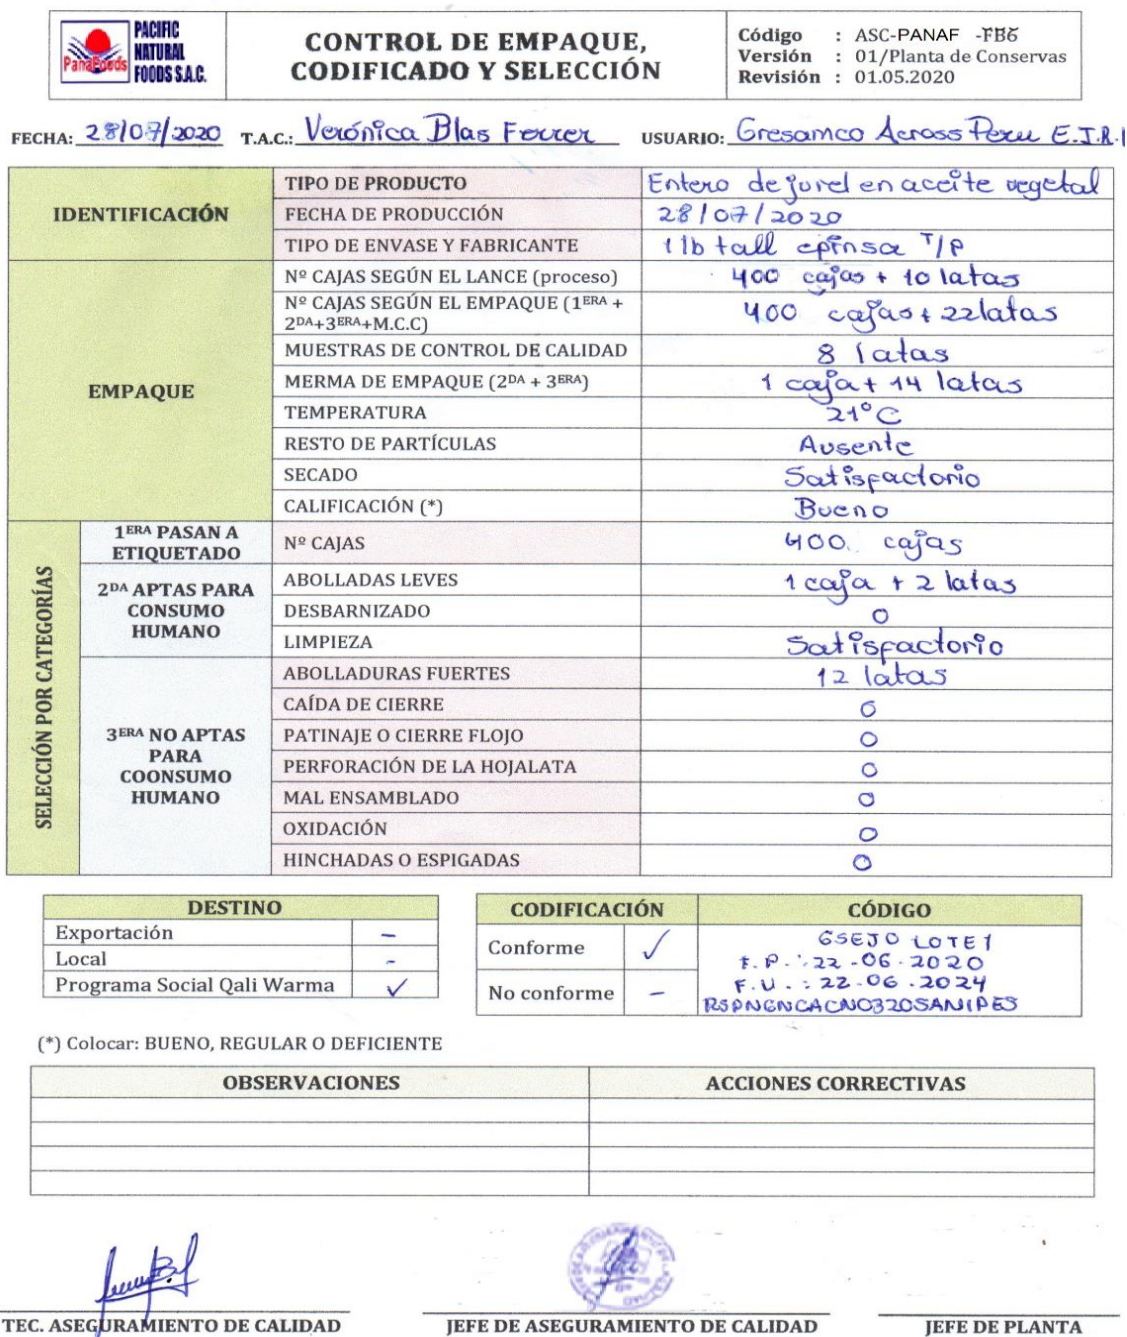 PACIFIC
NATURAL
FOODS S.A.C.
PanaFoods
CONTROL DE EMPAQUE,
CODIFICADO Y SELECCIÓN
Código : ASC-PANAF -FBG
Versión : 01/Planta de Conservas
Revisión : 01.05.2020
FECHA: 28/07/2020 T.A.C.: Verónica Blas Ferrer USUARIO: Gresamco Across Peru E.I.R.
IDENTIFICACIÓN
TIPO DE PRODUCTO Entero de jurel en aceite vegetal
FECHA DE PRODUCCIÓN 28/07/2020
TIPO DE ENVASE Y FABRICANTE 1 lb tall epinsa T/P
EMPAQUE
Nº CAJAS SEGÚN EL LANCE (proceso) 400 cajas + 10 latas
Nº CAJAS SEGÚN EL EMPAQUE (1ERA +
2DA+3ERA+M.C.C) 400 cajas + 22 latas
MUESTRAS DE CONTROL DE CALIDAD 8 latas
MERMA DE EMPAQUE (2DA + 3ERA) 1 caja + 14 latas
TEMPERATURA 21°C
RESTO DE PARTÍCULAS Ausente
SECADO Satisfactorio
CALIFICACIÓN (*) Bueno
SELECCIÓN POR CATEGORÍAS
1ERA PASAN A
ETIQUETADO
Nº CAJAS 400 cajas
2DA APTAS PARA
CONSUMO
HUMANO
ABOLLADAS LEVES 1 caja + 2 latas
DESBARNIZADO 0
LIMPIEZA Satisfactorio
3ERA NO APTAS
PARA
COONSUMO
HUMANO
ABOLLADURAS FUERTES 12 latas
CAÍDA DE CIERRE 0
PATINAJE O CIERRE FLOJO 0
PERFORACIÓN DE LA HOJALATA 0
MAL ENSAMBLADO 0
OXIDACIÓN 0
HINCHADAS O ESPIGADAS 0
DESTINO
Exportación -
Local -
Programa Social Qali Warma ✓
CODIFICACIÓN CÓDIGO
Conforme ✓
No conforme -
GSEJO LOTE1
F.P.: 22-06-2020
F.V.: 22-06-2024
RSPNGNCACN0320SANIPES
(*) Colocar: BUENO, REGULAR O DEFICIENTE
OBSERVACIONES ACCIONES CORRECTIVAS
TEC. ASEGURAMIENTO DE CALIDAD
JEFE DE ASEGURAMIENTO DE CALIDAD
JEFE DE PLANTA